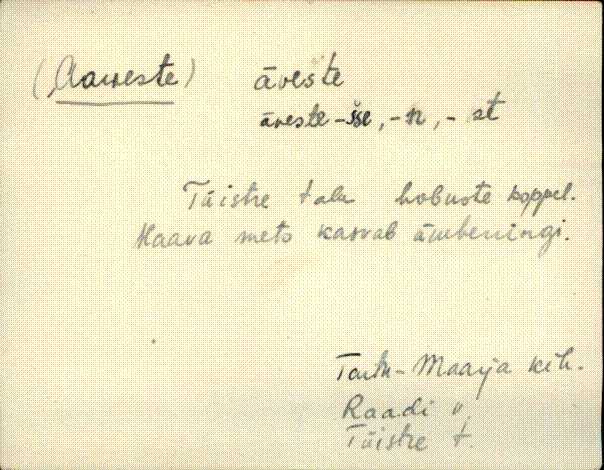 (Aaveste) āveste
āveste -s̆se, -n, - st
Tüistre talu hobuste koppel.
Haava mets kasvab ümberringi.
Tartu-Maarja kih.
Raadi v.
Tüistre t.